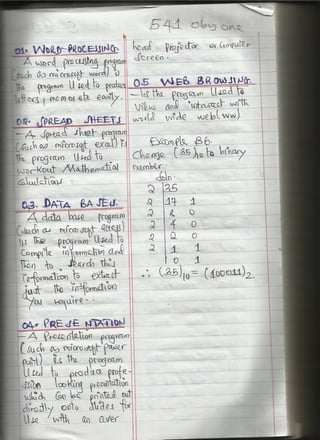 541 oby one
01. WORD PROCESSING
A word processing program
(such as microsoft word) is
the program Used to produce
letters, memos etc easily.
02. SPREAD SHEETS
- A spread sheet program
(Such as microsoft excel) is
the program Used to
workout Mathematical
calculations.
03. DATA BASES.
A data base program
(such as microsoft access)
is the program Used to
Compile information and
then to search this
information to extract
just the information
you require.
04. PRESENTATION
- A Presentation program
(such as microsoft power
point) is the program
Used to produce profe-
ssion looking presentation
which can be printed out
directly onto slides for
Use with an over
head Projector or computer
screen.
05 WEB BROWSING
- is the program Used to
View and interact with
world wide web (ww)
Example 86.
Change (35)10 to binary
number.
Soln.
2 35
2 17 1
2 8 0
2 4 0
2 2 0
2 1 1
0 1
∴ (35)10 = (100011)2